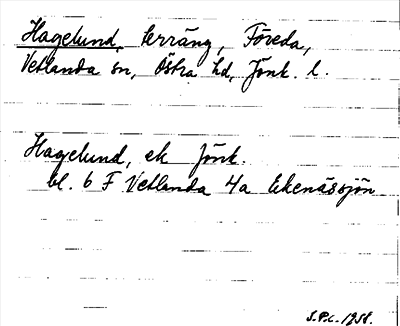 Hagelund, terräng, Föreda,
Vetlanda sn, Östra hd, Jönk. l.
Hagelund, ek Jönk.
bl. 6 F Vetlanda 4a Ekenässjön
S.P.L. 1958.